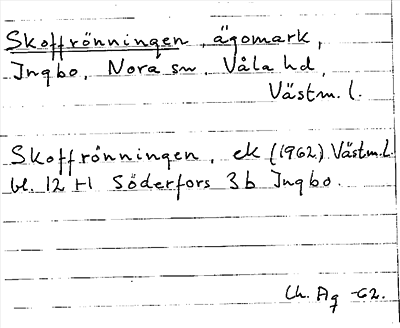 Skoffrönningen, ägomark,
Ingbo, Nora sn, Våla hd,
Västm. l.
Skoffrönningen, ek (1962) Västm. l.
bl. 12 H Söderfors 3 b Ingbo.
Ch. Ag -62.